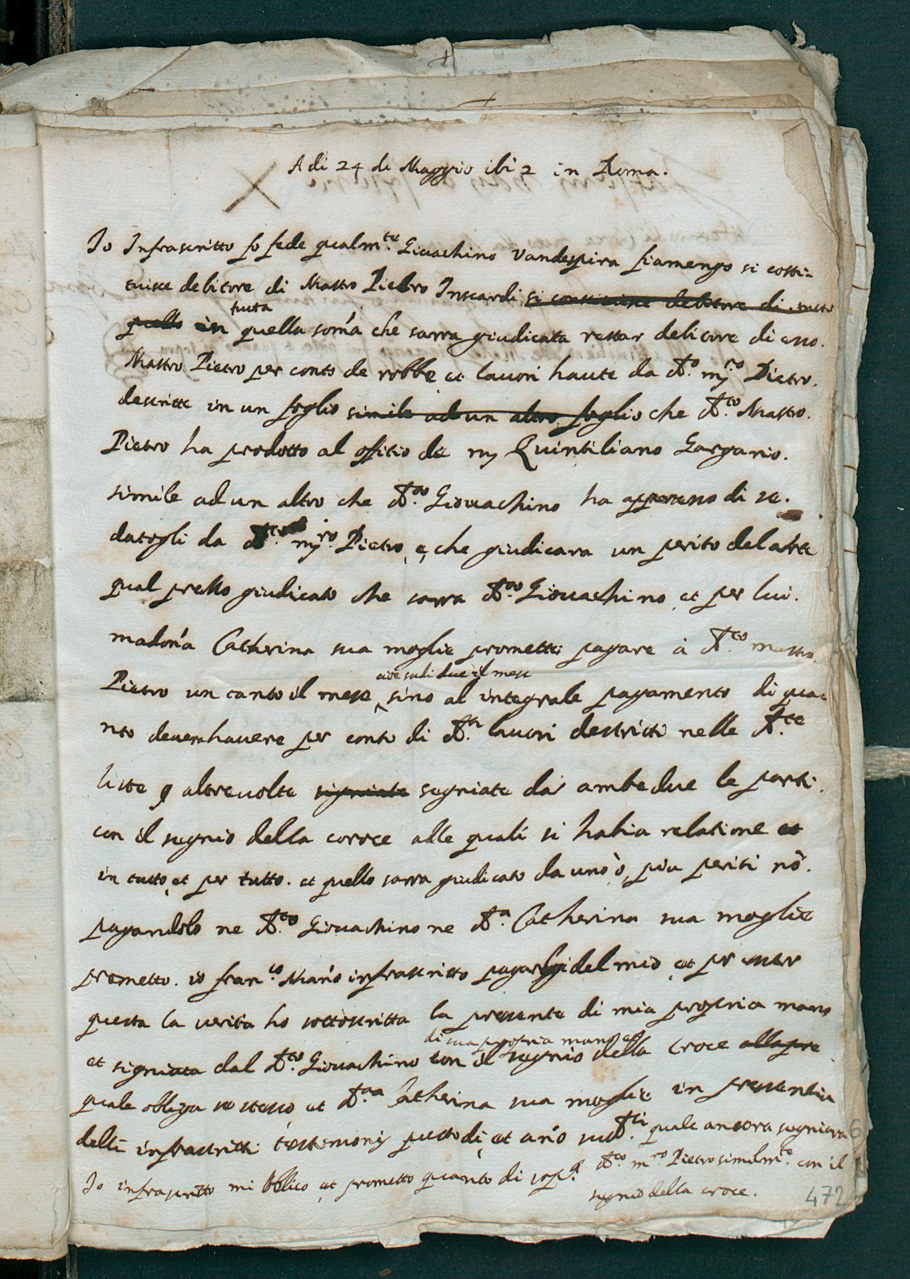 A di 24 di Maggio 1612 in Roma.
Io Infrascritto fo fede qualm.te Giovachino Vandespira fiamengo si costi-
tuisce debitore di Mastro Pietro Inscardi si constituisce debitore di tutto
quello in tutta quella som̃a che sarra giudicata restar debitore di esso.
Mastro Pietro per conto de robbe et lavori haute da d.o m.ro Pietro.
descritte in un foglio simile ad un altro foglio che d.to Mastro.
Pietro ha prodotto al offitio de m Quintiliano Gargario.
simile ad un altro che d.to Giovachino ha apresso di se.
datogli da m.ro Pietro, e, che giudicara un perito del arte
qual prezzo giudicato che sarra d.to Giovachino et per lui.
madon̄a Catherina sua moglie promette pagare à d.to mastro.
cioè scudi due il mese
Pietro un tanto il mese sino al integrale pagamento di qua-
nto dever havere per conto di d.ti lavori descritti nelle d.te
liste altre volte signiate segniate da ambedue le parti.
con il segnio della croce alle quali si habia relatione et
in tutto et per tutto. et quello sarra giudicato da uno ò, piu periti nō.
pagandolo ne d.to Giovachino ne d.a Catherina sua moglie
prometto. io fran.co Mario infrascritto pagarlo del mio et per esser
questa la verita ho sottoscritta la presente di mia propria mano
di sua propria mano
et signiata dal d.to Giovachino con il segnio della croce
quale obliga se stesso et d.ta Catherina sua moglie in presentia
delli infrascritti testimonij questo di, et an̄o sud.ti quale ancora segniera
d.to m.ro Pietro similm.te con il
segnio della croce.
Io infrascritto mi obligo et prometto quanto di sop.a
472